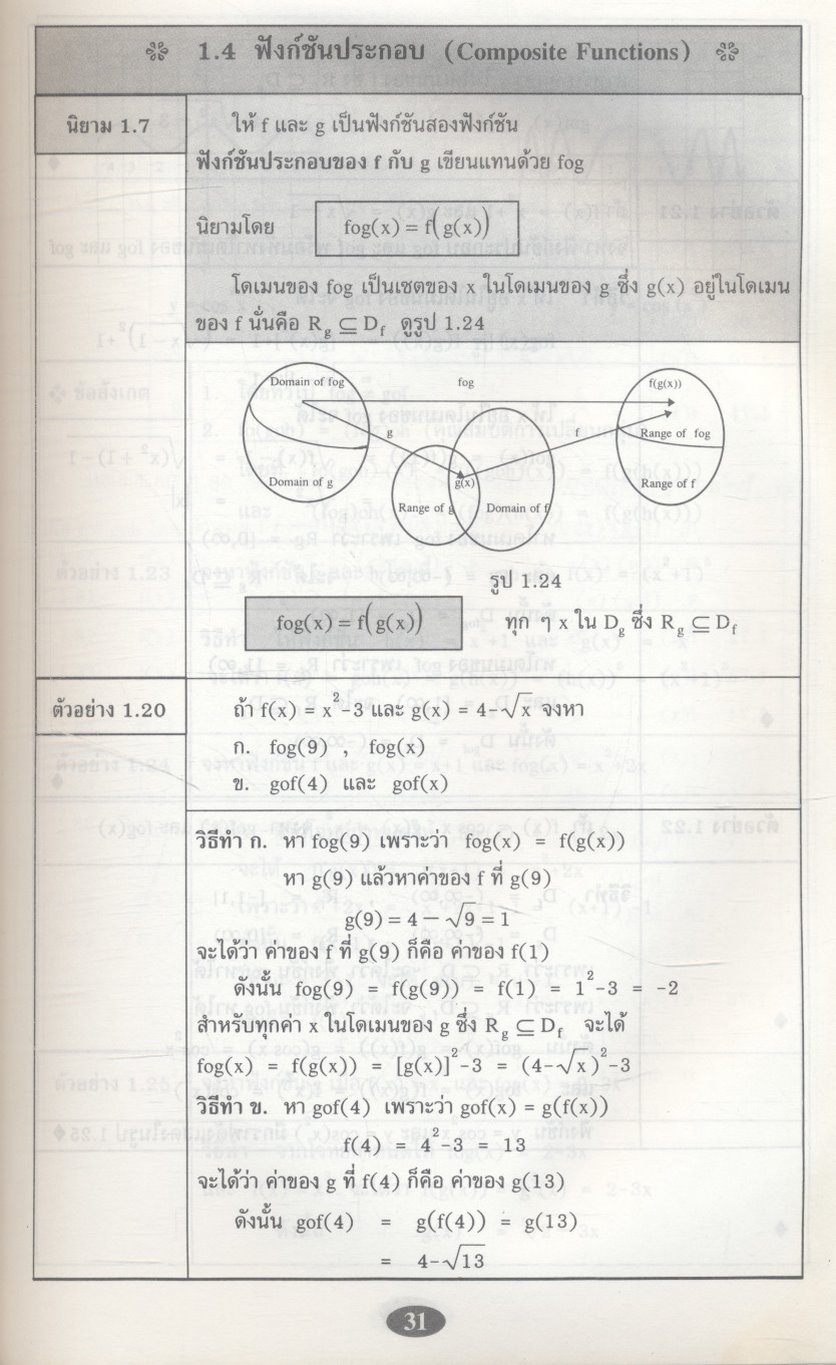 1.4 ฟังก์ชันประกอบ (Composite Functions)
นิยาม 1.7
ให้ f และ g เป็นฟังก์ชันสองฟังก์ชัน
ฟังก์ชันประกอบของ f กับ g เขียนแทนด้วย fog
นิยามโดย fog(x) = f(g(x))
โดเมนของ fog เป็นเซตของ x ในโดเมนของ g ซึ่ง g(x) อยู่ในโดเมน
ของ f นั่นคือ R_g ⊆ D_f ดูรูป 1.24
Domain of fog
fog
f(g(x))
g
f
Range of fog
Domain of g
g(x)
Range of f
Range of g
Domain of f
รูป 1.24
fog(x) = f(g(x)) ทุก ๆ x ใน D_g ซึ่ง R_g ⊆ D_f
ตัวอย่าง 1.20
ถ้า f(x) = x²-3 และ g(x) = 4-√x จงหา
ก. fog(9) , fog(x)
ข. gof(4) และ gof(x)
วิธีทำ ก. หา fog(9) เพราะว่า fog(x) = f(g(x))
หา g(9) แล้วหาค่าของ f ที่ g(9)
g(9) = 4 − √9 = 1
จะได้ว่า ค่าของ f ที่ g(9) ก็คือ ค่าของ f(1)
ดังนั้น fog(9) = f(g(9)) = f(1) = 1²-3 = -2
สำหรับทุกค่า x ในโดเมนของ g ซึ่ง R_g ⊆ D_f จะได้
fog(x) = f(g(x)) = [g(x)]²-3 = (4-√x)²-3
วิธีทำ ข. หา gof(4) เพราะว่า gof(x) = g(f(x))
f(4) = 4²-3 = 13
จะได้ว่า ค่าของ g ที่ f(4) ก็คือ ค่าของ g(13)
ดังนั้น gof(4) = g(f(4)) = g(13)
= 4-√13
31